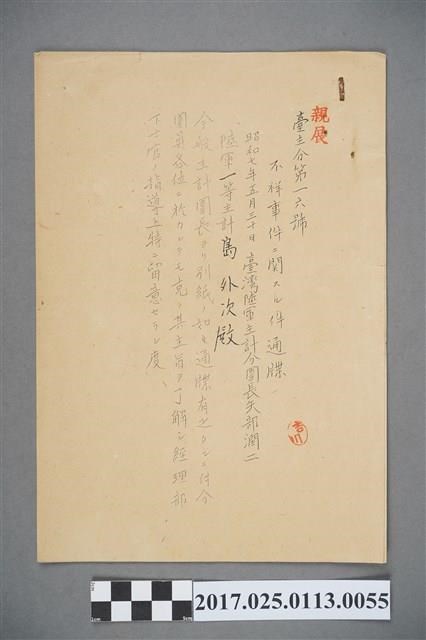 親展
臺主分第一六號
不祥事件ニ関スル件通牒
昭和七年五月三十日 臺灣陸軍主計分團長矢部潤二
陸軍一等主計 島外次殿
今般主計團長ヨリ別紙ノ如キ通牒有之タルニ付分
團員各位ニ於カレテモ克ク其主旨ヲ了解シ経理部
下士官ノ指導上特ニ留意セラレ度
吉川
1cm
5cm
2017.025.0113.0055